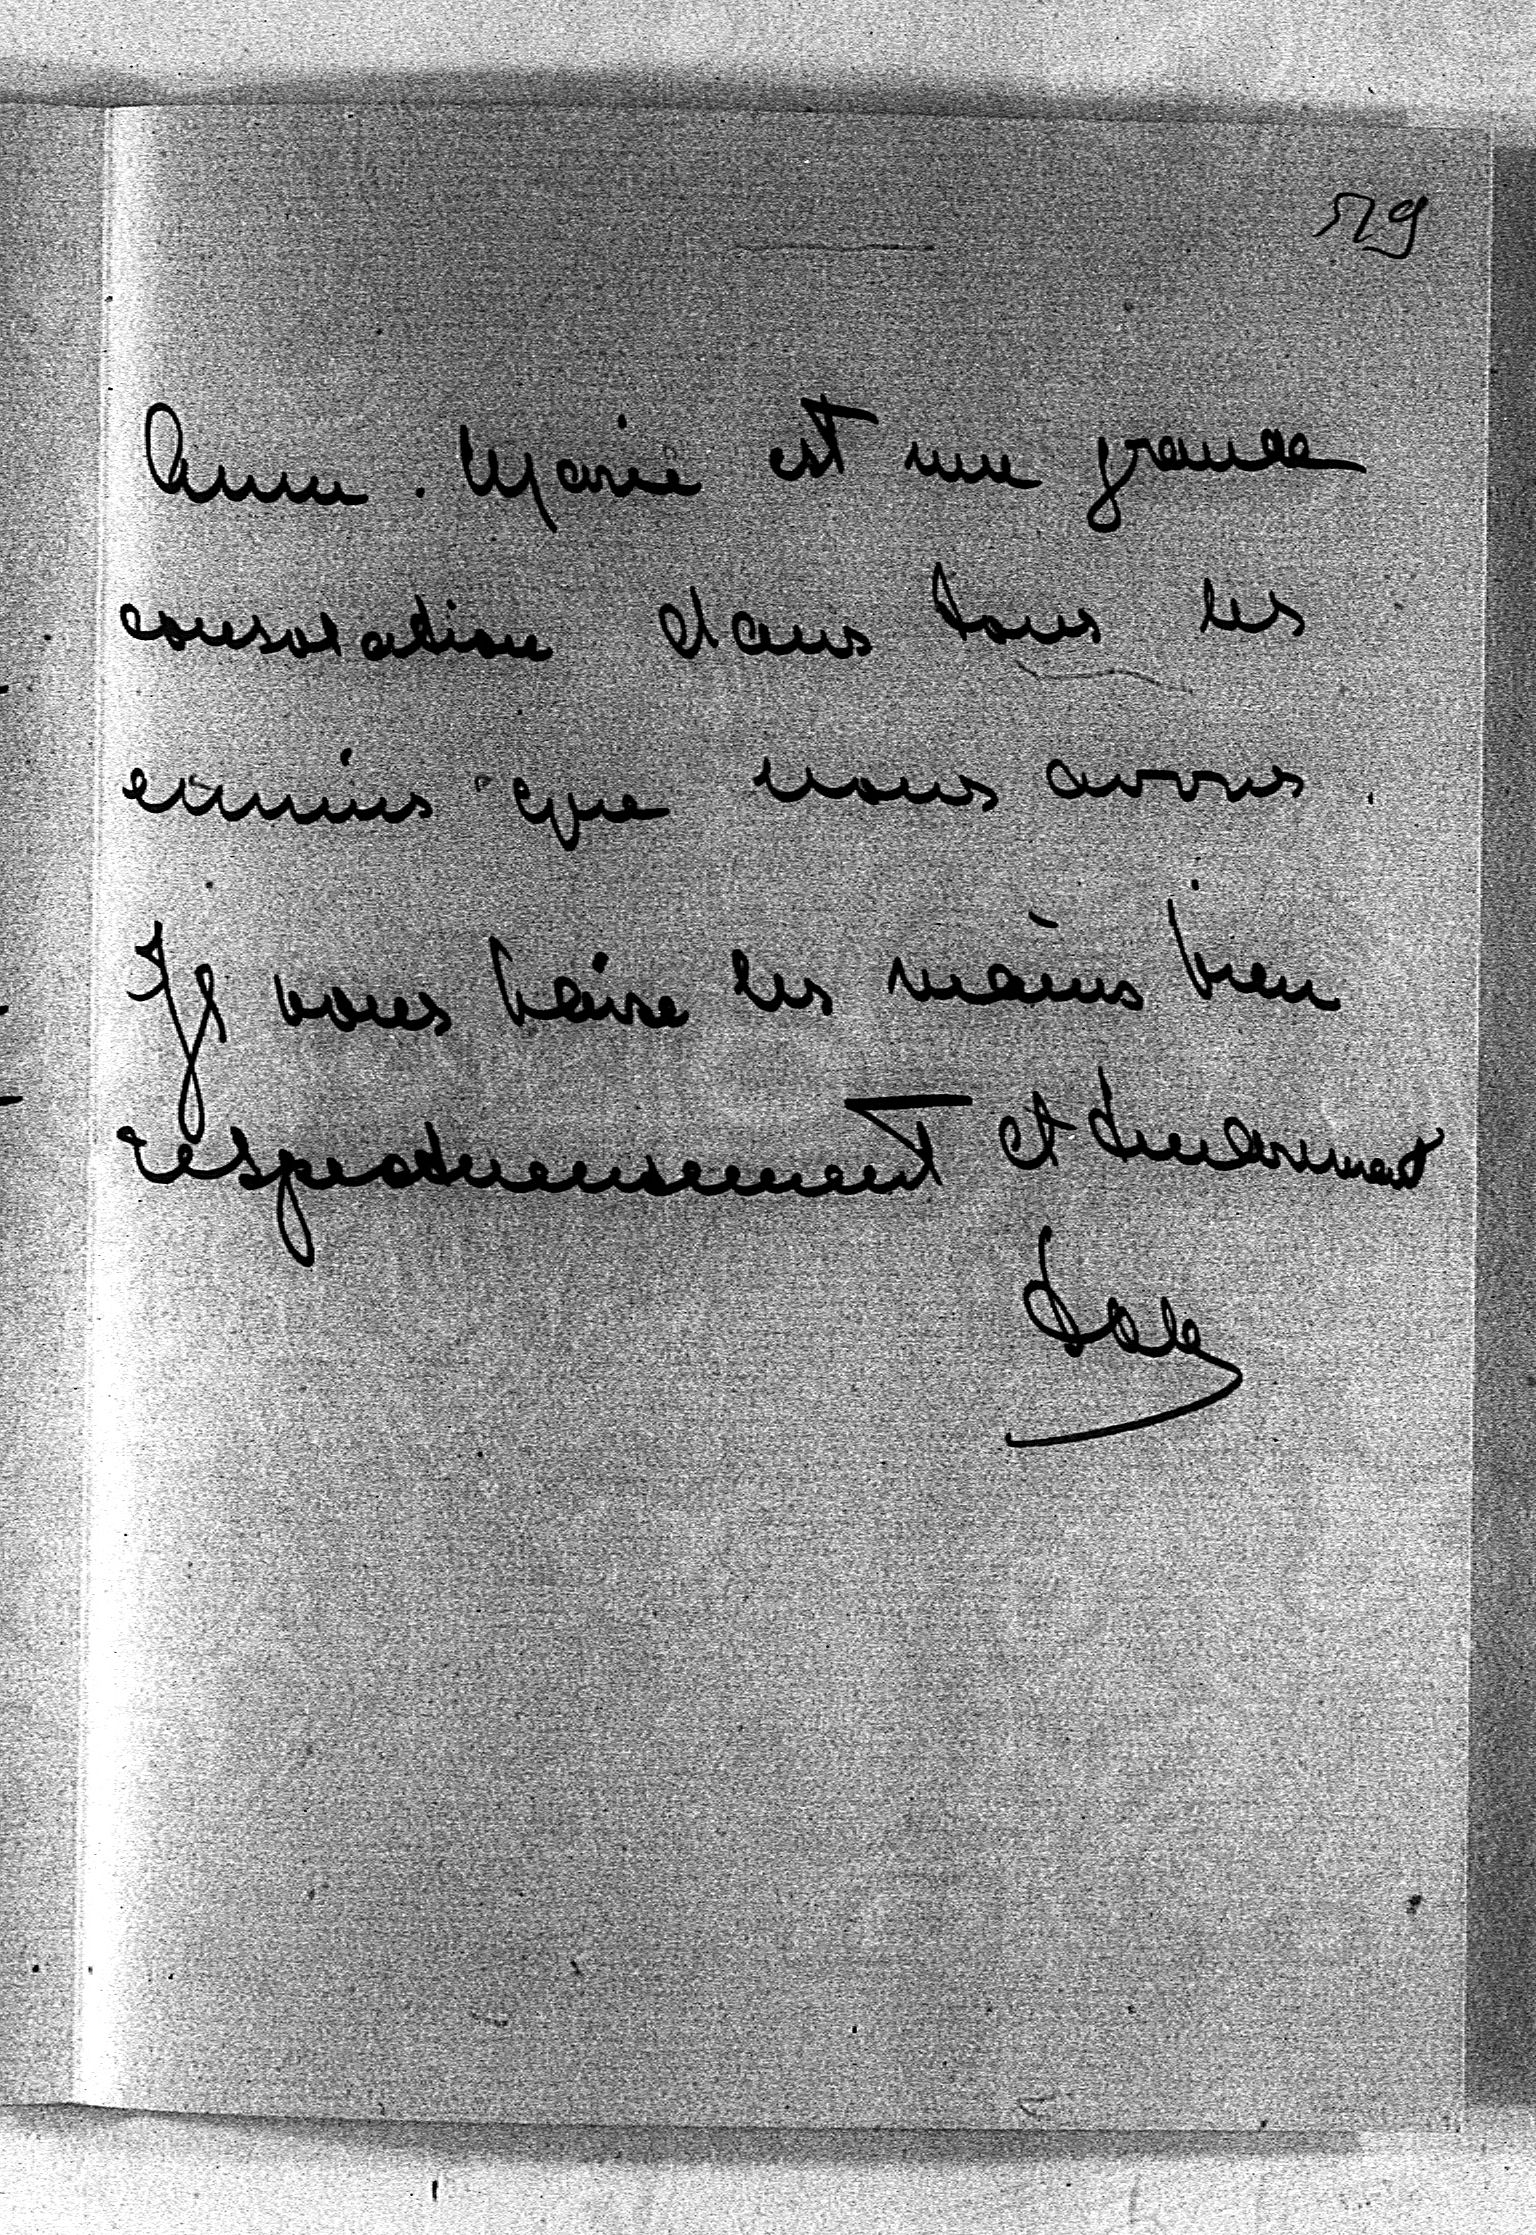 529
Anne. Marie est une grande
consolation dans tous les
ennuis que nous avons.
Je vous baise les mains bien
respectueusement et tendrement